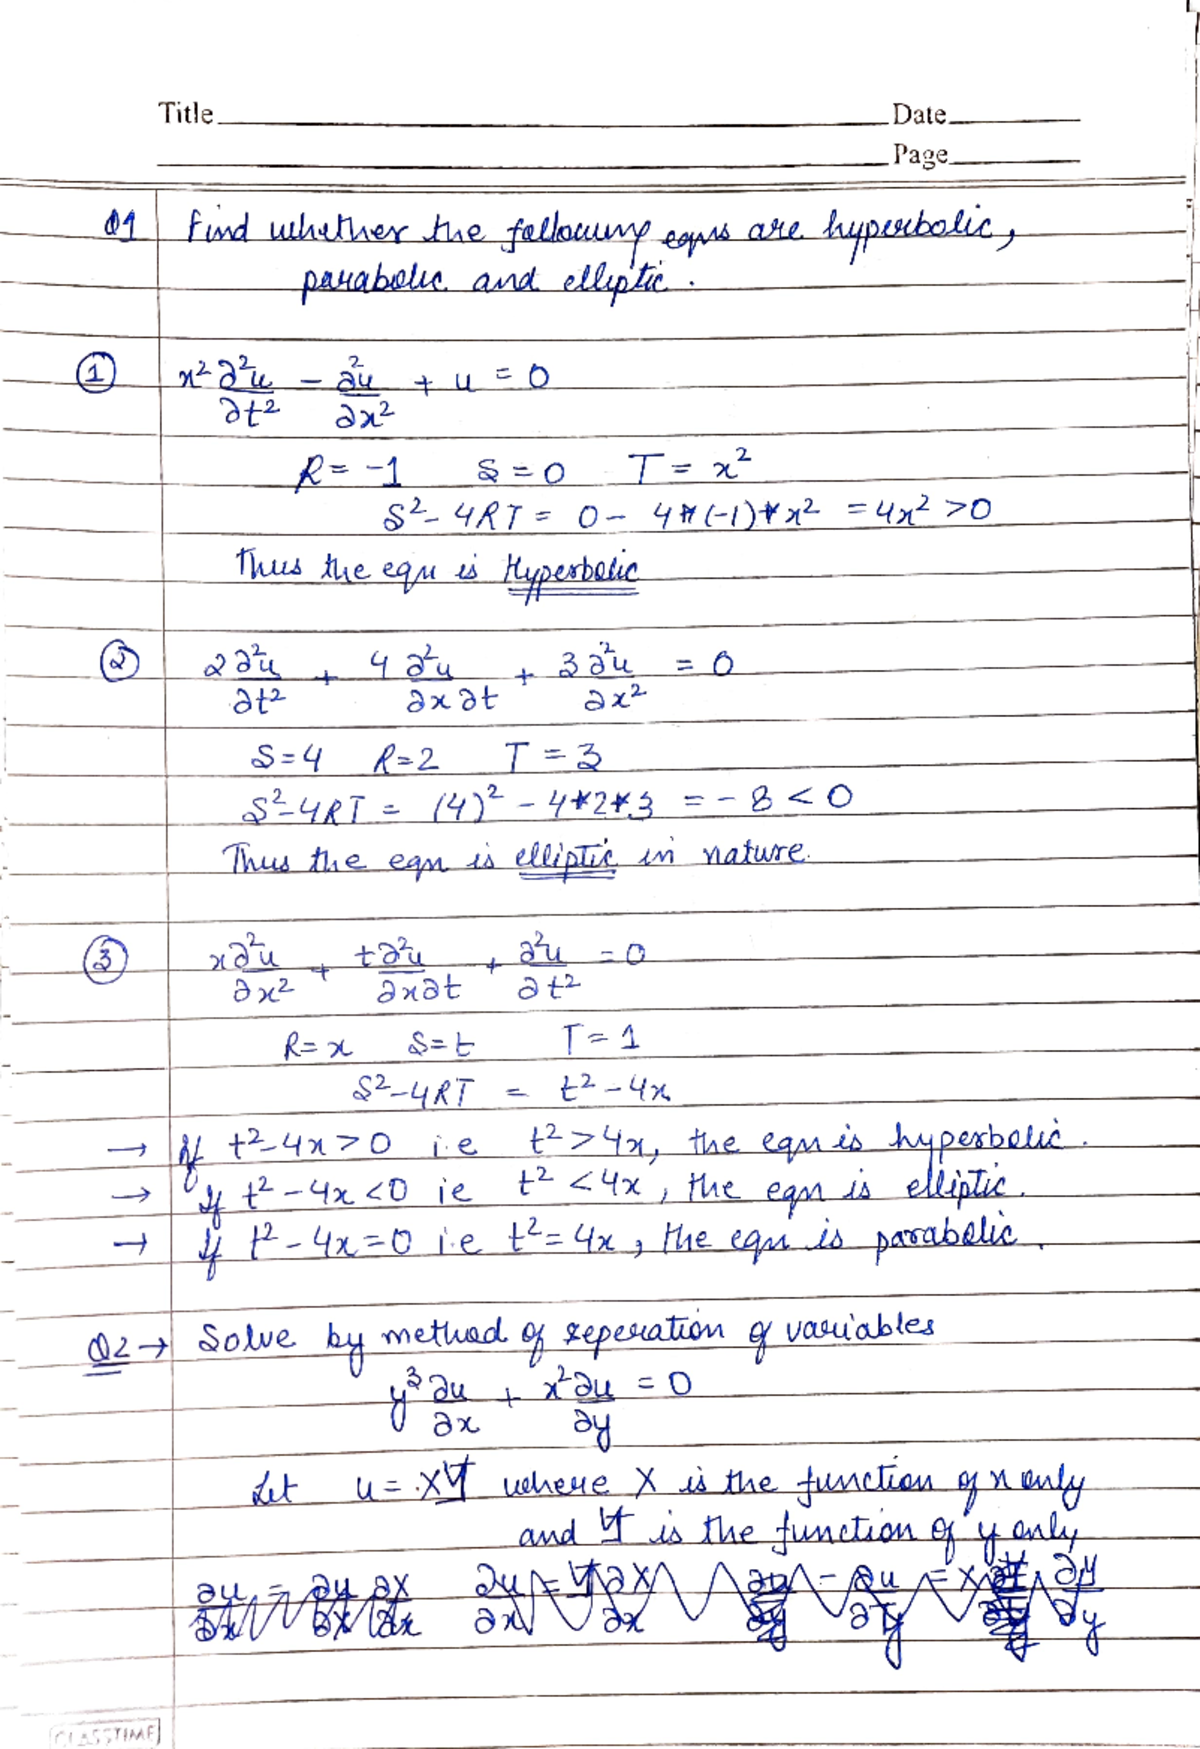 Title
Date
Page
Q1 Find whether the following eqns are hyperbolic,
parabolic and elliptic.
① x² ∂²u/∂t² - ∂²u/∂x² + u = 0
R = -1 S = 0 T = x²
S² - 4RT = 0 - 4*(-1)*x² = 4x² > 0
Thus the eqn is Hyperbolic
② 2∂²u/∂t² + 4∂²u/∂x∂t + 3∂²u/∂x² = 0
S = 4 R = 2 T = 3
S² - 4RT = (4)² - 4*2*3 = -8 < 0
Thus the eqn is elliptic in nature.
③ x∂²u/∂x² + t∂²u/∂x∂t + ∂²u/∂t² = 0
R = x S = t T = 1
S² - 4RT = t² - 4x
→ If t² - 4x > 0 i.e t² > 4x, the eqn is hyperbolic.
→ If t² - 4x < 0 ie t² < 4x, the eqn is elliptic.
→ If t² - 4x = 0 i.e t² = 4x, the eqn is parabolic.
Q2 → Solve by method of seperation of variables
y³ ∂u/∂x + x² ∂u/∂y = 0
Let u = XY where X is the function of x only
and Y is the function of y only
CLASSTIME